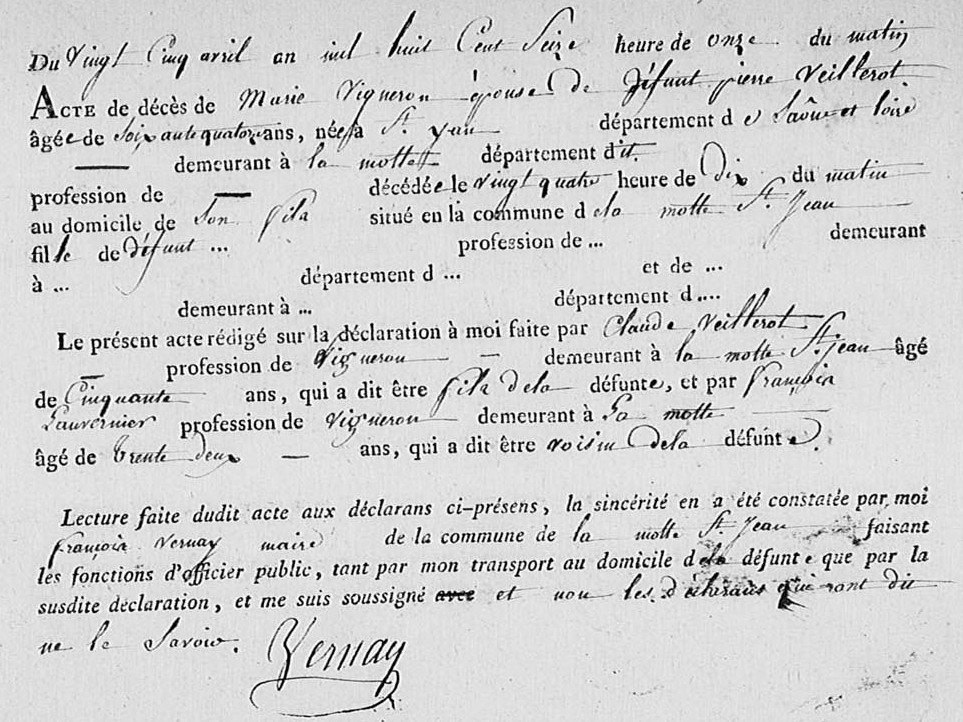 Du Vingt Cinq avril an mil huit Cent Seize heure de onze du matin
ACTE de décès de Marie Vigneron épouse de défunt pierre Veillerot
âgée de Soixante quatorze ans, née à St. Jean département de Saône et Loire
— demeurant à la motte département dit.
profession de — décédée le vingt quatre heure de Dix du matin
au domicile de Son fils situé en la commune de la motte St. Jean
fille de défunt ... profession de ... demeurant
à ... département d ... et de ...
demeurant à ... département d ....
Le présent acte rédigé sur la déclaration à moi faite par Claude Veillerot
— profession de Vigneron — demeurant à la motte St. Jean âgé
de Cinquante ans, qui a dit être fils dela défunte, et par françois
Lauvernier profession de vigneron demeurant à La motte
âgé de trente deux — ans, qui a dit être voisin dela défunte.
Lecture faite dudit acte aux déclarans ci-présens, la sincérité en a été constatée par moi
françois Vernay maire de la commune de la motte St. Jean faisant
les fonctions d'officier public, tant par mon transport au domicile dela défunte que par la
susdite déclaration, et me suis soussigné avec et non les déclarans qui ront dit
ne le Savoir.
Vernay